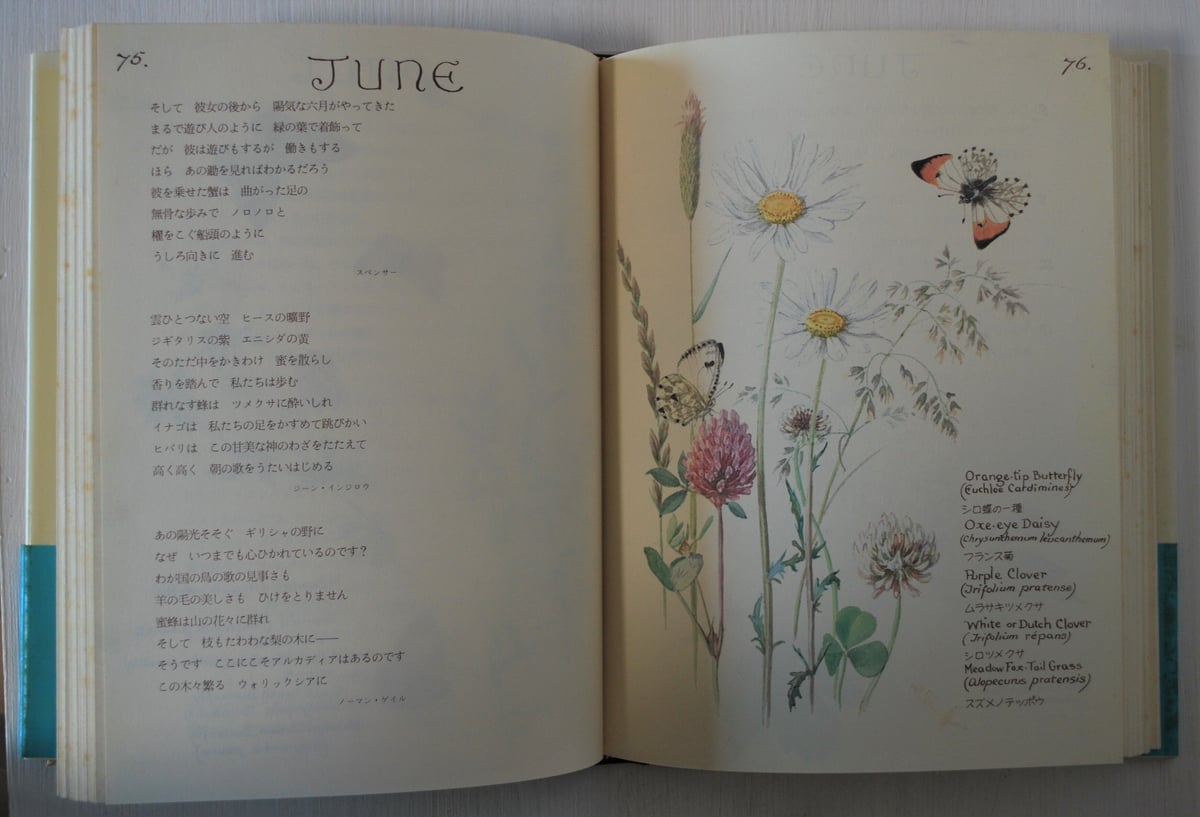 75.
JUNE
そして　彼女の後から　陽気な六月がやってきた
まるで遊び人のように　緑の葉で着飾って
だが　彼は遊びもするが　働きもする
ほら　あの鋤を見ればわかるだろう
彼を乗せた蟹は　曲がった足の
無骨な歩みで　ノロノロと
櫂をこぐ船頭のように
うしろ向きに　進む
スペンサー
雲ひとつない空　ヒースの曠野
ジギタリスの紫　エニシダの黄
そのただ中をかきわけ　蜜を散らし
香りを踏んで　私たちは歩む
群れなす蜂は　ツメクサに酔いしれ
イナゴは　私たちの足をかすめて跳びかい
ヒバリは　この甘美な神のわざをたたえて
高く高く　朝の歌をうたいはじめる
ジーン・インジロウ
あの陽光そそぐ　ギリシャの野に
なぜ　いつまでも心ひかれているのです？
わが国の鳥の歌の見事さも
羊の毛の美しさも　ひけをとりません
蜜蜂は山の花々に群れ
そして　枝もたわわな梨の木に——
そうです　ここにこそアルカディアはあるのです
この木々繁る　ウォリックシアに
ノーマン・ゲイル
76.
Orange-tip Butterfly
(Euchloë Cardimines)
シロ蝶の一種
Oxe-eye Daisy
(Chrysunthemum leucanthemum)
フランス菊
Purple Clover
(Trifolium pratense)
ムラサキツメクサ
White or Dutch Clover
(Trifolium répans)
シロツメクサ
Meadow Fox-Tail Grass
(Alopecurus pratensis)
スズメノテッポウ